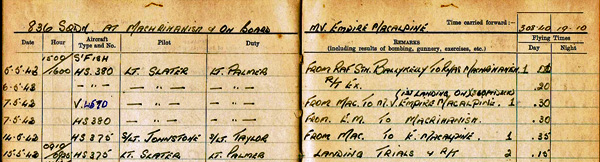 836 SQDN. AT MACHRIHANISH & ON BOARD M.V. EMPIRE MACALPINE
Time carried forward:— 308.40 19.10
Date Hour Aircraft Type and No. Pilot Duty REMARKS (including results of bombing, gunnery, exercises, etc.) Flying Times Day Night
1500 S'FISH
5.5.43 1600 HS.380 LT. SLATER LT. PALMER FROM RAF STN. BALLYKELLY TO RNAS MACHRIHANISH 1
6.5.43 — " — — " — — " — R/T EX. .20
(1ST LANDING ON
7.5.43 V.4690 — " — — " — FROM MAC. TO M.V. EMPIRE MACALPINE. 1 .30
7.5.43 HS380 — " — — " — FROM E.M. TO MACRIHANISH. .30
14.5.43 HS375 S/LT. JOHNSTONE S/LT. TAYLOR FROM MAC. TO E. MACALPINE 1 .35
15.5.43 HS375 LT. SLATER LT. PALMER LANDING TRIALS & R/T 2 .15